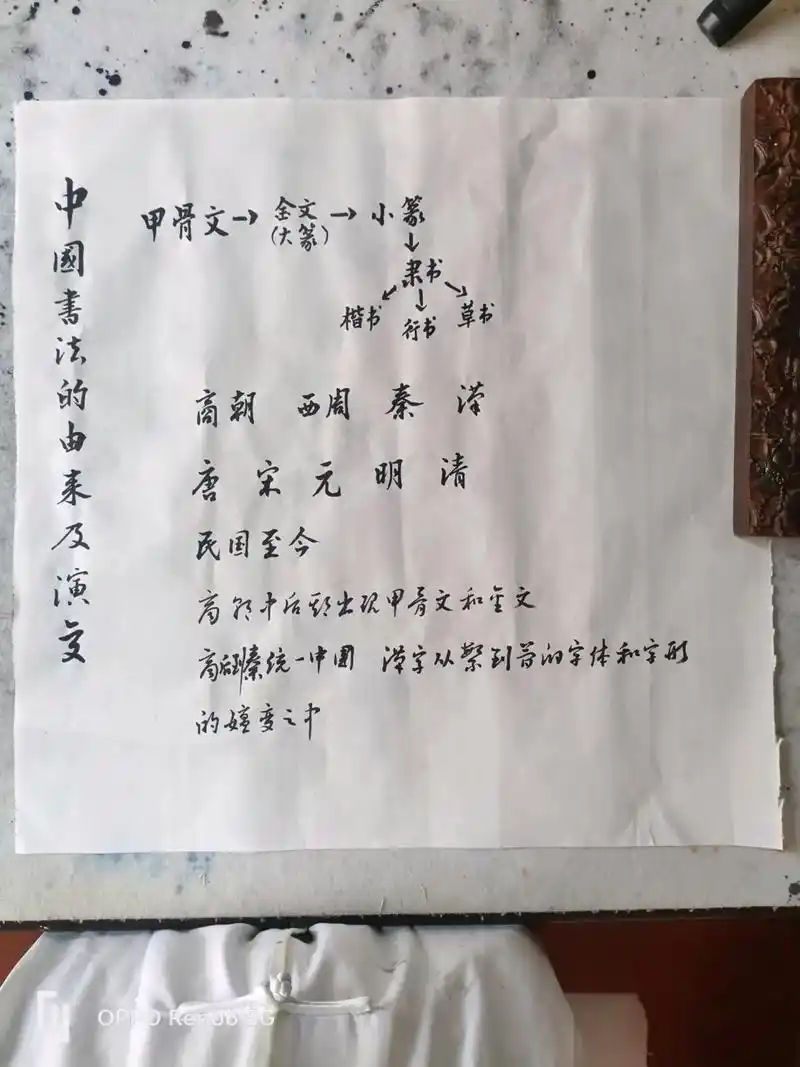 中國書法的由来及演变
甲骨文→金文→小篆
(大篆)
↓
隶书
↙ ↓ ↘
楷书 行书 草书
商朝 西周 秦 漢
唐 宋 元 明 清
民国至今
商朝中后期出现甲骨文和金文
商后到秦统一中国 漢字从繁到简的字体和字形
的嬗变之中
OPPO Reno6 5G